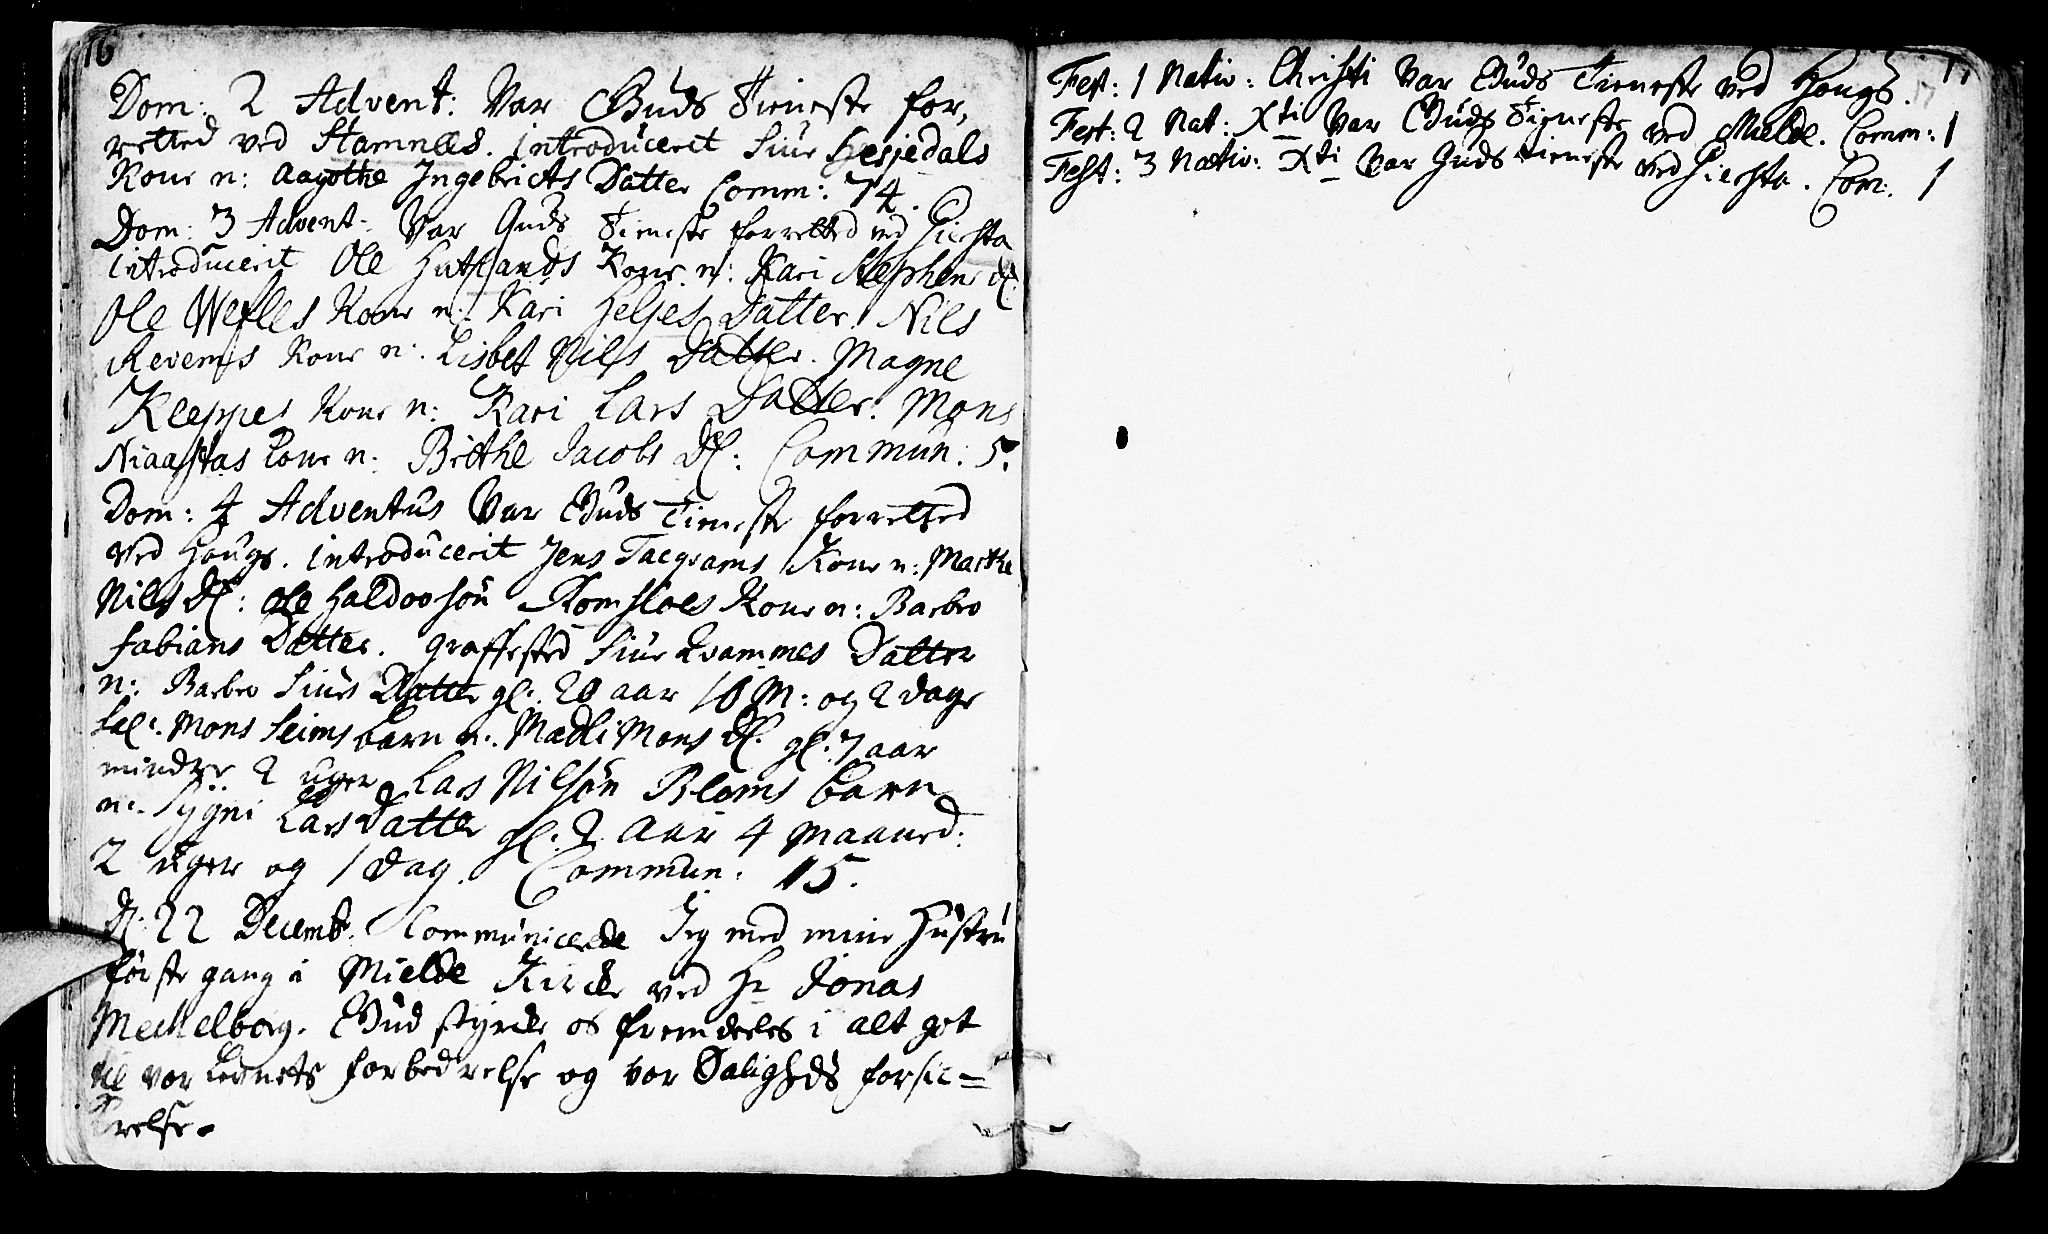 16
Dom: 2 Advent: Var Guds Tieneste for,
retted ved Stamnes. introducerit Siur Hesjedals
Kone n: Aagothe Ingebricts Datter Comm: 74.
Dom: 3 Advent: Var Guds Tieneste forretted ved Giersta
introducerit Ole Hatlands Kone n: Kari Stephens d.
Ole Wefles Kone n: Kari Heljes Datter. Nils
Revems Kone n: Lisbet Nils Datter. Magne
Kleppes Kone n: Kari Lars Datter. Mons
Niaastas Kone n: Brithe Jacobs D: Commun: 5.
Dom: 4 Adventus Var Guds Tieneste forretted
ved Hougs. introducerit Jens Tacqrams Kone n: Marthe
Nils D: Ole Haldorsøn Romsloes Kone n: Barbro
Fabians Datter. Graffested Siur Qvammes Datter
n: Barbro Siurs Datter gl: 20 aar 10 M: og 2 dage
Sal: Mons Seims barn n: Madli Mons D. gl: 7 aar
mindre 2 uger Lars Nilsøn Bloms barn
n: Sygni Lars Datter gl: 2 Aar 4 Maaned:
2 uger og 1 dag. Commun: 15.
D: 22 Decemb. Communicerede Jeg med min Hustru
første gang i Mielde Kircke ved Hr Jonas
Meckelborg. Gud styrcke os fremdeeles i alt got
til vor Lefnets forbedrelse og vor Saligheds forsic=
krelse.
17
Fest: 1 Nativ: Christi Var Guds Tieneste ved Hougs.
Fest: 2 Nat: Xti Var Guds Tieneste ved Mielde. Comm: 1
Fest: 3 Nativ: Xti Var Guds tieneste ved Giersta. Com: 1